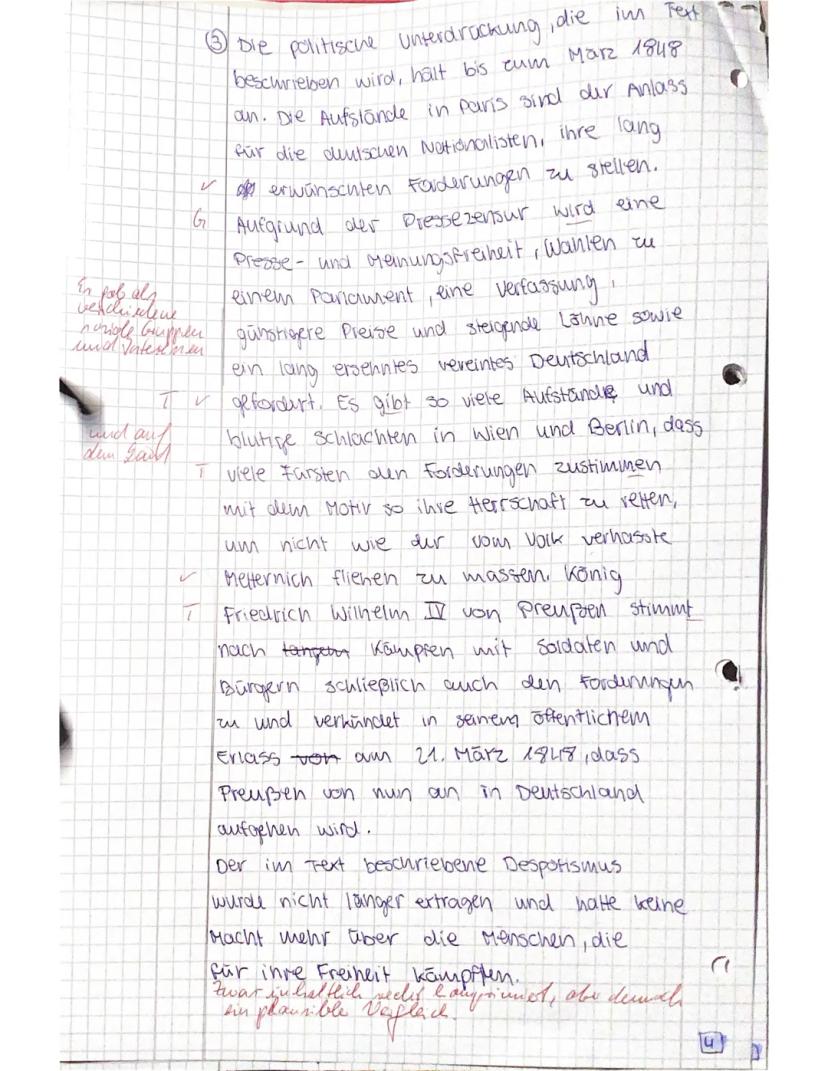 ③ Die politische Unterdrückung, die im Text
beschrieben wird, hält bis zum März 1848
an. Die Aufstände in Paris sind der Anlass
für die deutschen Nationalisten, ihre lang
✓ erwünschten Forderungen zu stellen.
G Aufgrund der Pressezensur wird eine
Presse- und Meinungsfreiheit, Wahlen zu
einem Parlament, eine Verfassung,
günstigere Preise und steigende Löhne sowie
ein lang ersehntes vereintes Deutschland
T ✓ gefordert. Es gibt so viele Aufstände und
blutige Schlachten in Wien und Berlin, dass
T viele Fürsten den Forderungen zustimmen
mit dem Motiv so ihre Herrschaft zu retten,
um nicht wie der vom Volk verhasste
✓ Metternich fliehen zu müssen. König
T Friedrich Wilhelm IV von Preußen stimmt
nach langem Kämpfen mit Soldaten und
Bürgern schließlich auch den Forderungen
zu und verkündet in seinem öffentlichem
Erlass von am 21. März 1848, dass
Preußen von nun an in Deutschland
aufgehen wird.
Der im Text beschriebene Despotismus
wurde nicht länger ertragen und hatte keine
Macht mehr über die Menschen, die
für ihre Freiheit kämpften.
Zwar inhaltlich recht komprimiert, aber dennoch
ein plausibler Vergleich.
Es gab als
verschiedene
soziale Gruppen
und Interessen
und auf
dem Land
4